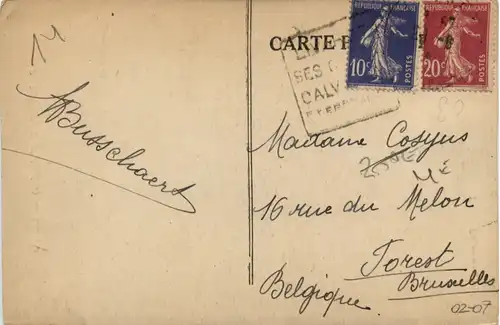 14
CARTE P
REPUBLIQUE FRANÇAISE
10c POSTES
REPUBLIQUE FRANÇAISE
20c POSTES
SES
CALV
Busschaert
Madame Cosyns
16 rue du Melon
Forest
Bruxelles
Belgique
02-07